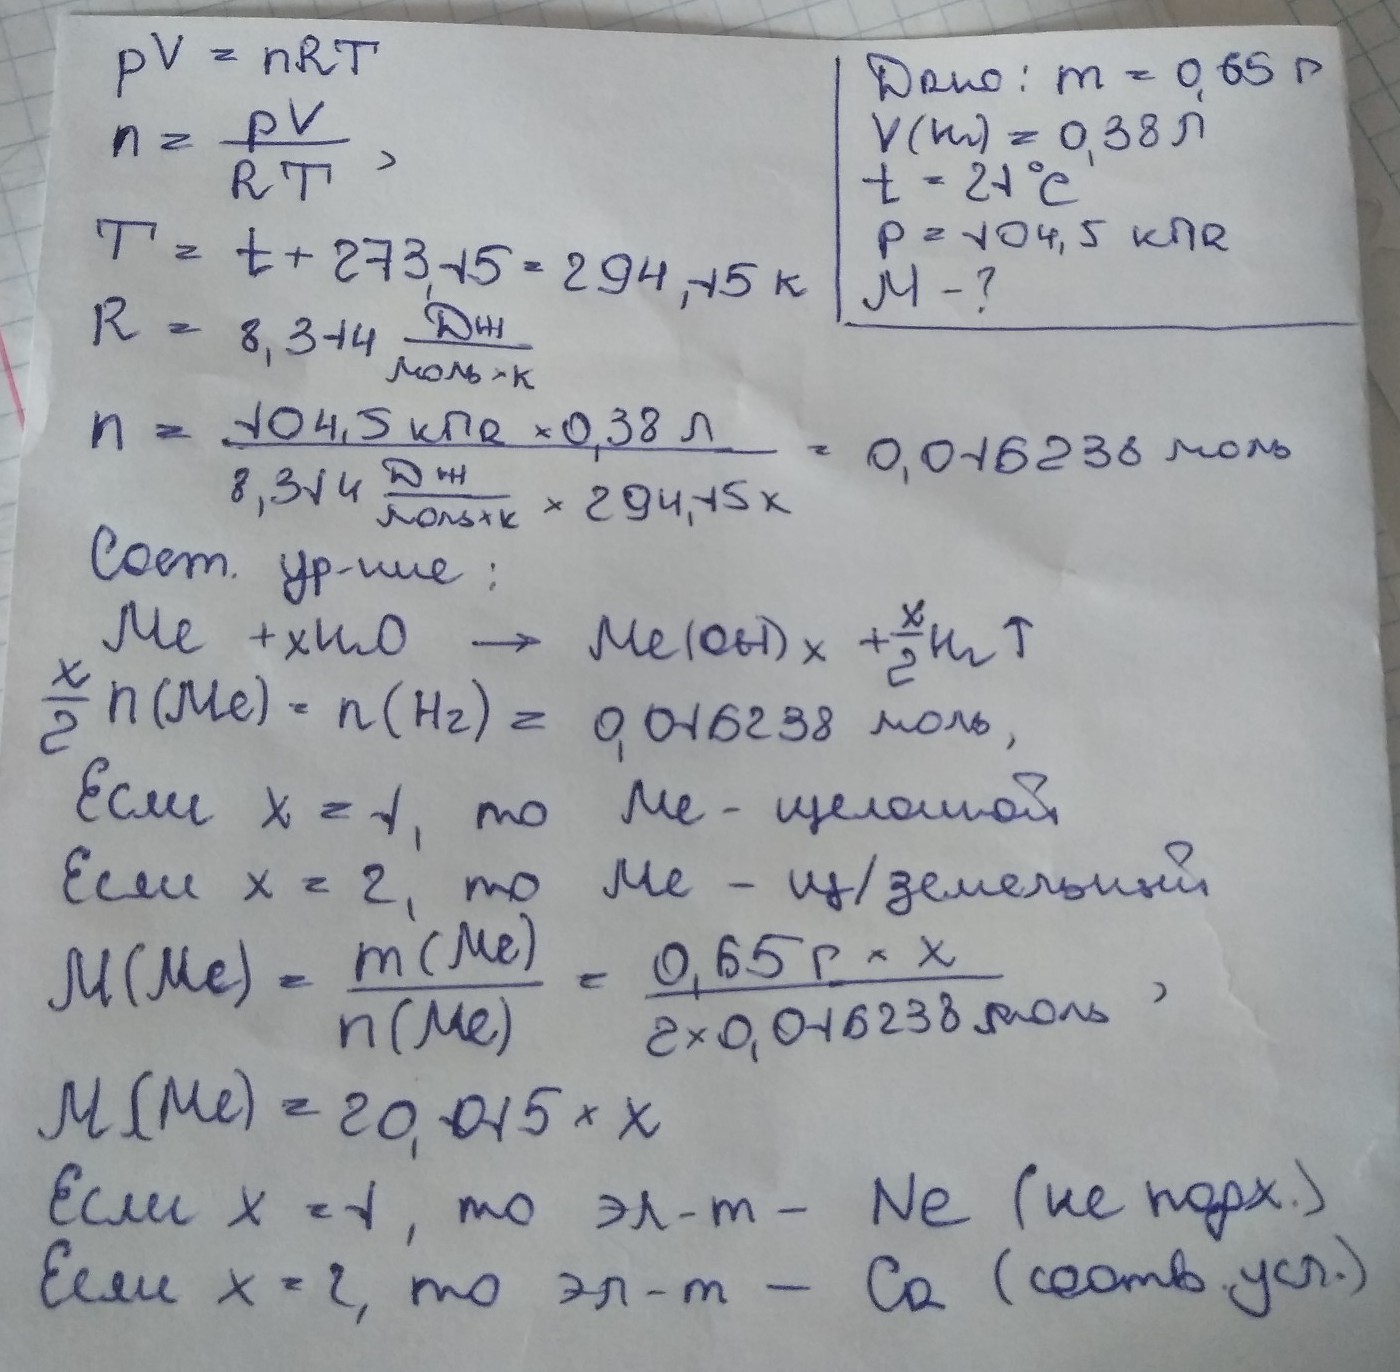 pV = nRT
n = pV / RT ,
T = t + 273,15 = 294,15 К
R = 8,314 Дж / моль × К
Дано: m = 0,65 г
V(H₂) = 0,38 л
t = 21°C
p = 104,5 кПа
M - ?
n = 104,5 кПа × 0,38 л / 8,314 Дж / моль × К × 294,15 К = 0,016238 моль
Сост. ур-ние:
Me + xH₂O → Me(OH)x + x/2 H₂ ↑
x/2 n(Me) = n(H₂) = 0,016238 моль,
Если x = 1, то Me - щелочной
Если x = 2, то Me - щ/земельный
M(Me) = m(Me) / n(Me) = 0,65 г × x / 2 × 0,016238 моль ,
M(Me) = 20,015 × x
Если x = 1, то эл-т - Ne (не подх.)
Если x = 2, то эл-т - Ca (соотв. усл.)